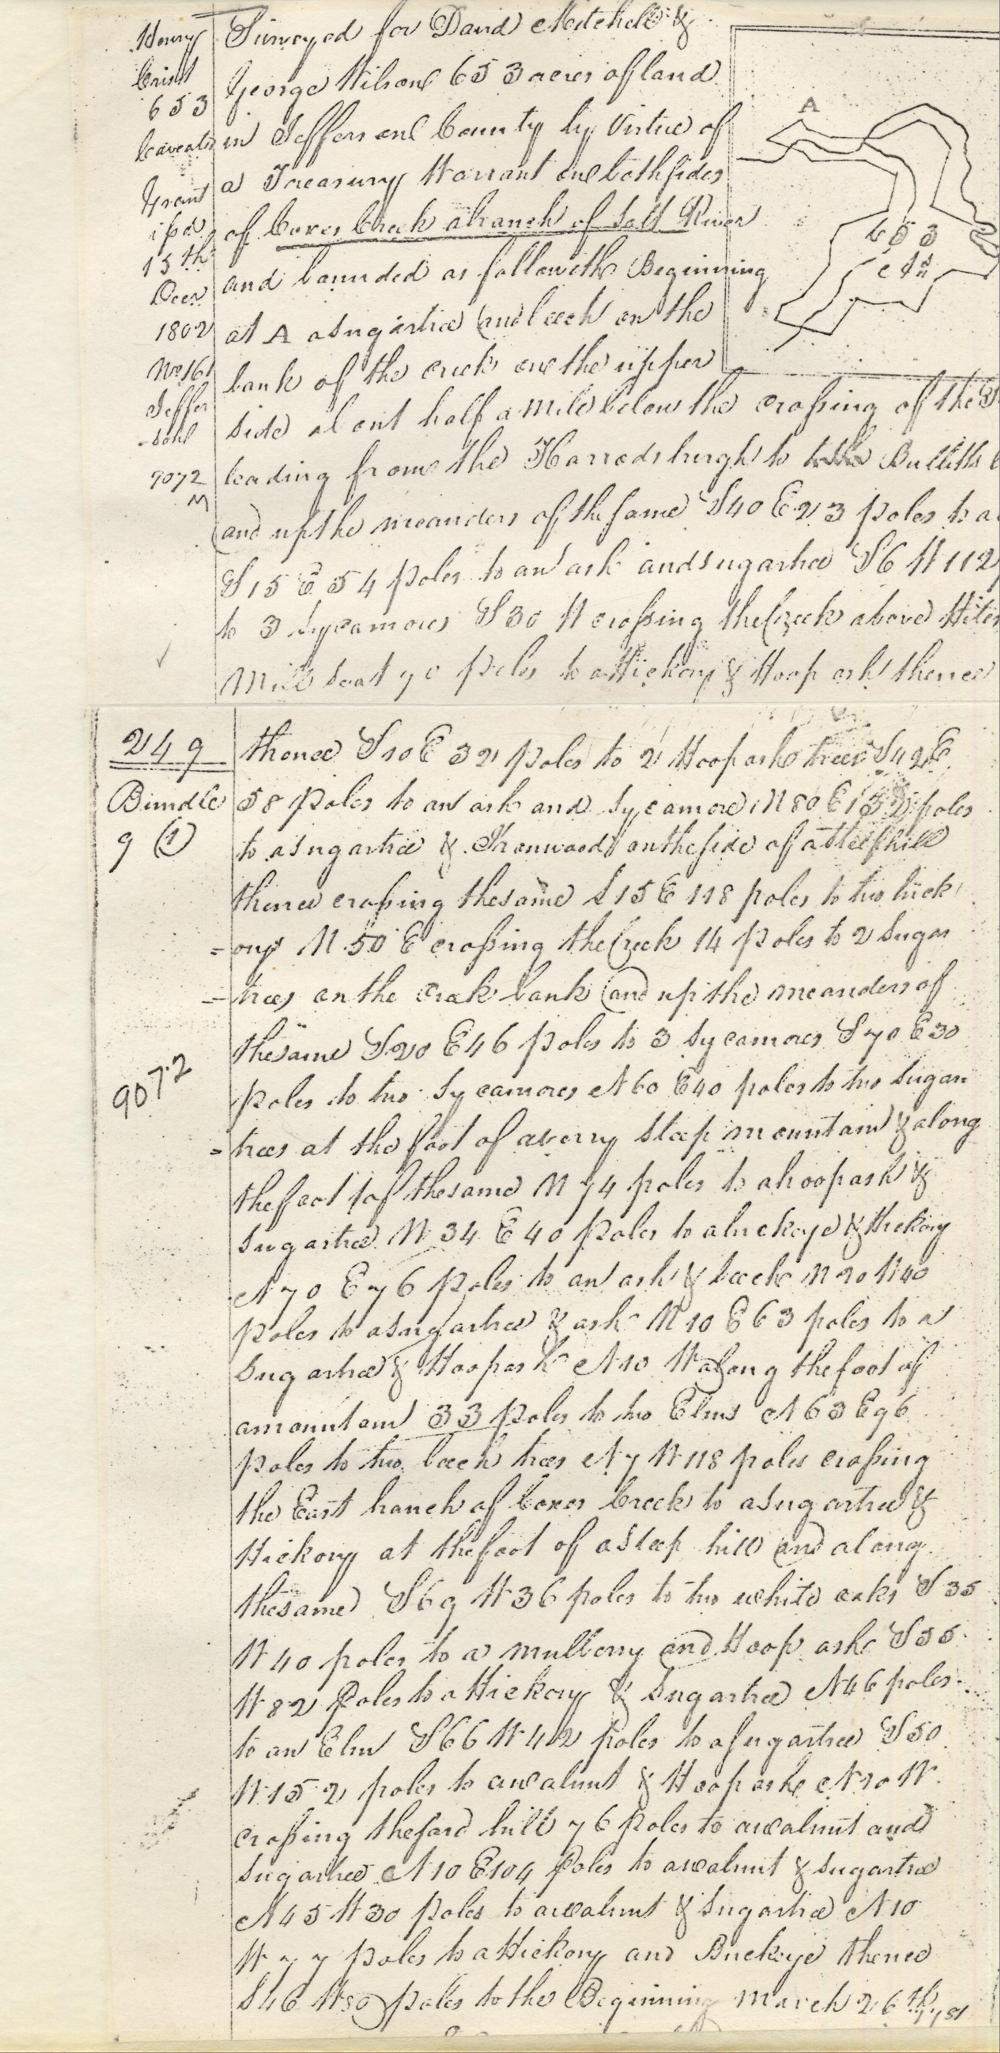 Henry
Crist
653
Caveats
Grant
issd
15th
Decr
1802
No 161
Jeffer
-son
9072
M
Surveyed for David Mitchell &
George Wilson 653 acres of land
in Jefferson County by Virtue of
a Treasury Warrant on both sides
of Coxes Creek a branch of Salt River
and bounded as followeth Beginning
at A a Sugartree and beech on the
bank of the creek on the upper
side about half a Mile below the crossing of the
leading from the Harrodsburgh to Bullitts
and up the meanders of the same S40 E 23 poles to a
S15 E 54 poles to an ash and sugartree S6 W 112
to 3 Sycamores S30 W crossing the Creek above Hites
Mill Seat 70 poles to a Hickory & Hoop ash thence
A
653
249
Bundle
9 (1)
9072
thence S10 E 32 poles to 2 Hoop ash trees S42 E
58 poles to an ash and Sycamore N80 E 152 poles
to a Sugartree & Ironwood on the side of a Steep hill
thence crossing the same S15 E 118 poles to two hick
= orys N50 E crossing the Creek 14 poles to 2 Sugar
= trees on the creek bank and up the meanders of
the same S20 E 46 poles to 3 Sycamores S70 E 30
poles to two Sycamores N60 E 40 poles to two Sugar
= trees at the foot of a very steep mountain & along
the foot of the same N 74 poles to a hoop ash &
Sugartree N34 E 40 poles to a buckeye & Hickory
N70 E 76 poles to an ash & beech N20 W 40
poles to a Sugartree & ash N10 E 63 poles to a
Sugartree & Hoop ash N10 W along the foot of
a mountain 33 poles to two Elms N63 E 96
poles to two beech trees N7 W 118 poles crossing
the East branch of Coxes Creek to a Sugartree &
Hickory at the foot of a steep hill and along
the same S69 W 36 poles to two white oaks S35
W 40 poles to a mulberry and Hoop ash S55
W 82 Poles to a Hickory & Sugartree N46 poles
to an Elm S66 W 42 poles to a Sugartree S50
W 152 poles to a walnut & Hoop ash N20 W
crossing the said hill 76 poles to a walnut and
Sugartree N10 E 104 Poles to a walnut & Sugartree
N45 W 30 poles to a walnut & Sugartree N10
W 77 poles to a Hickory and Buckeye thence
S46 W 80 poles to the Beginning March 26th 1781